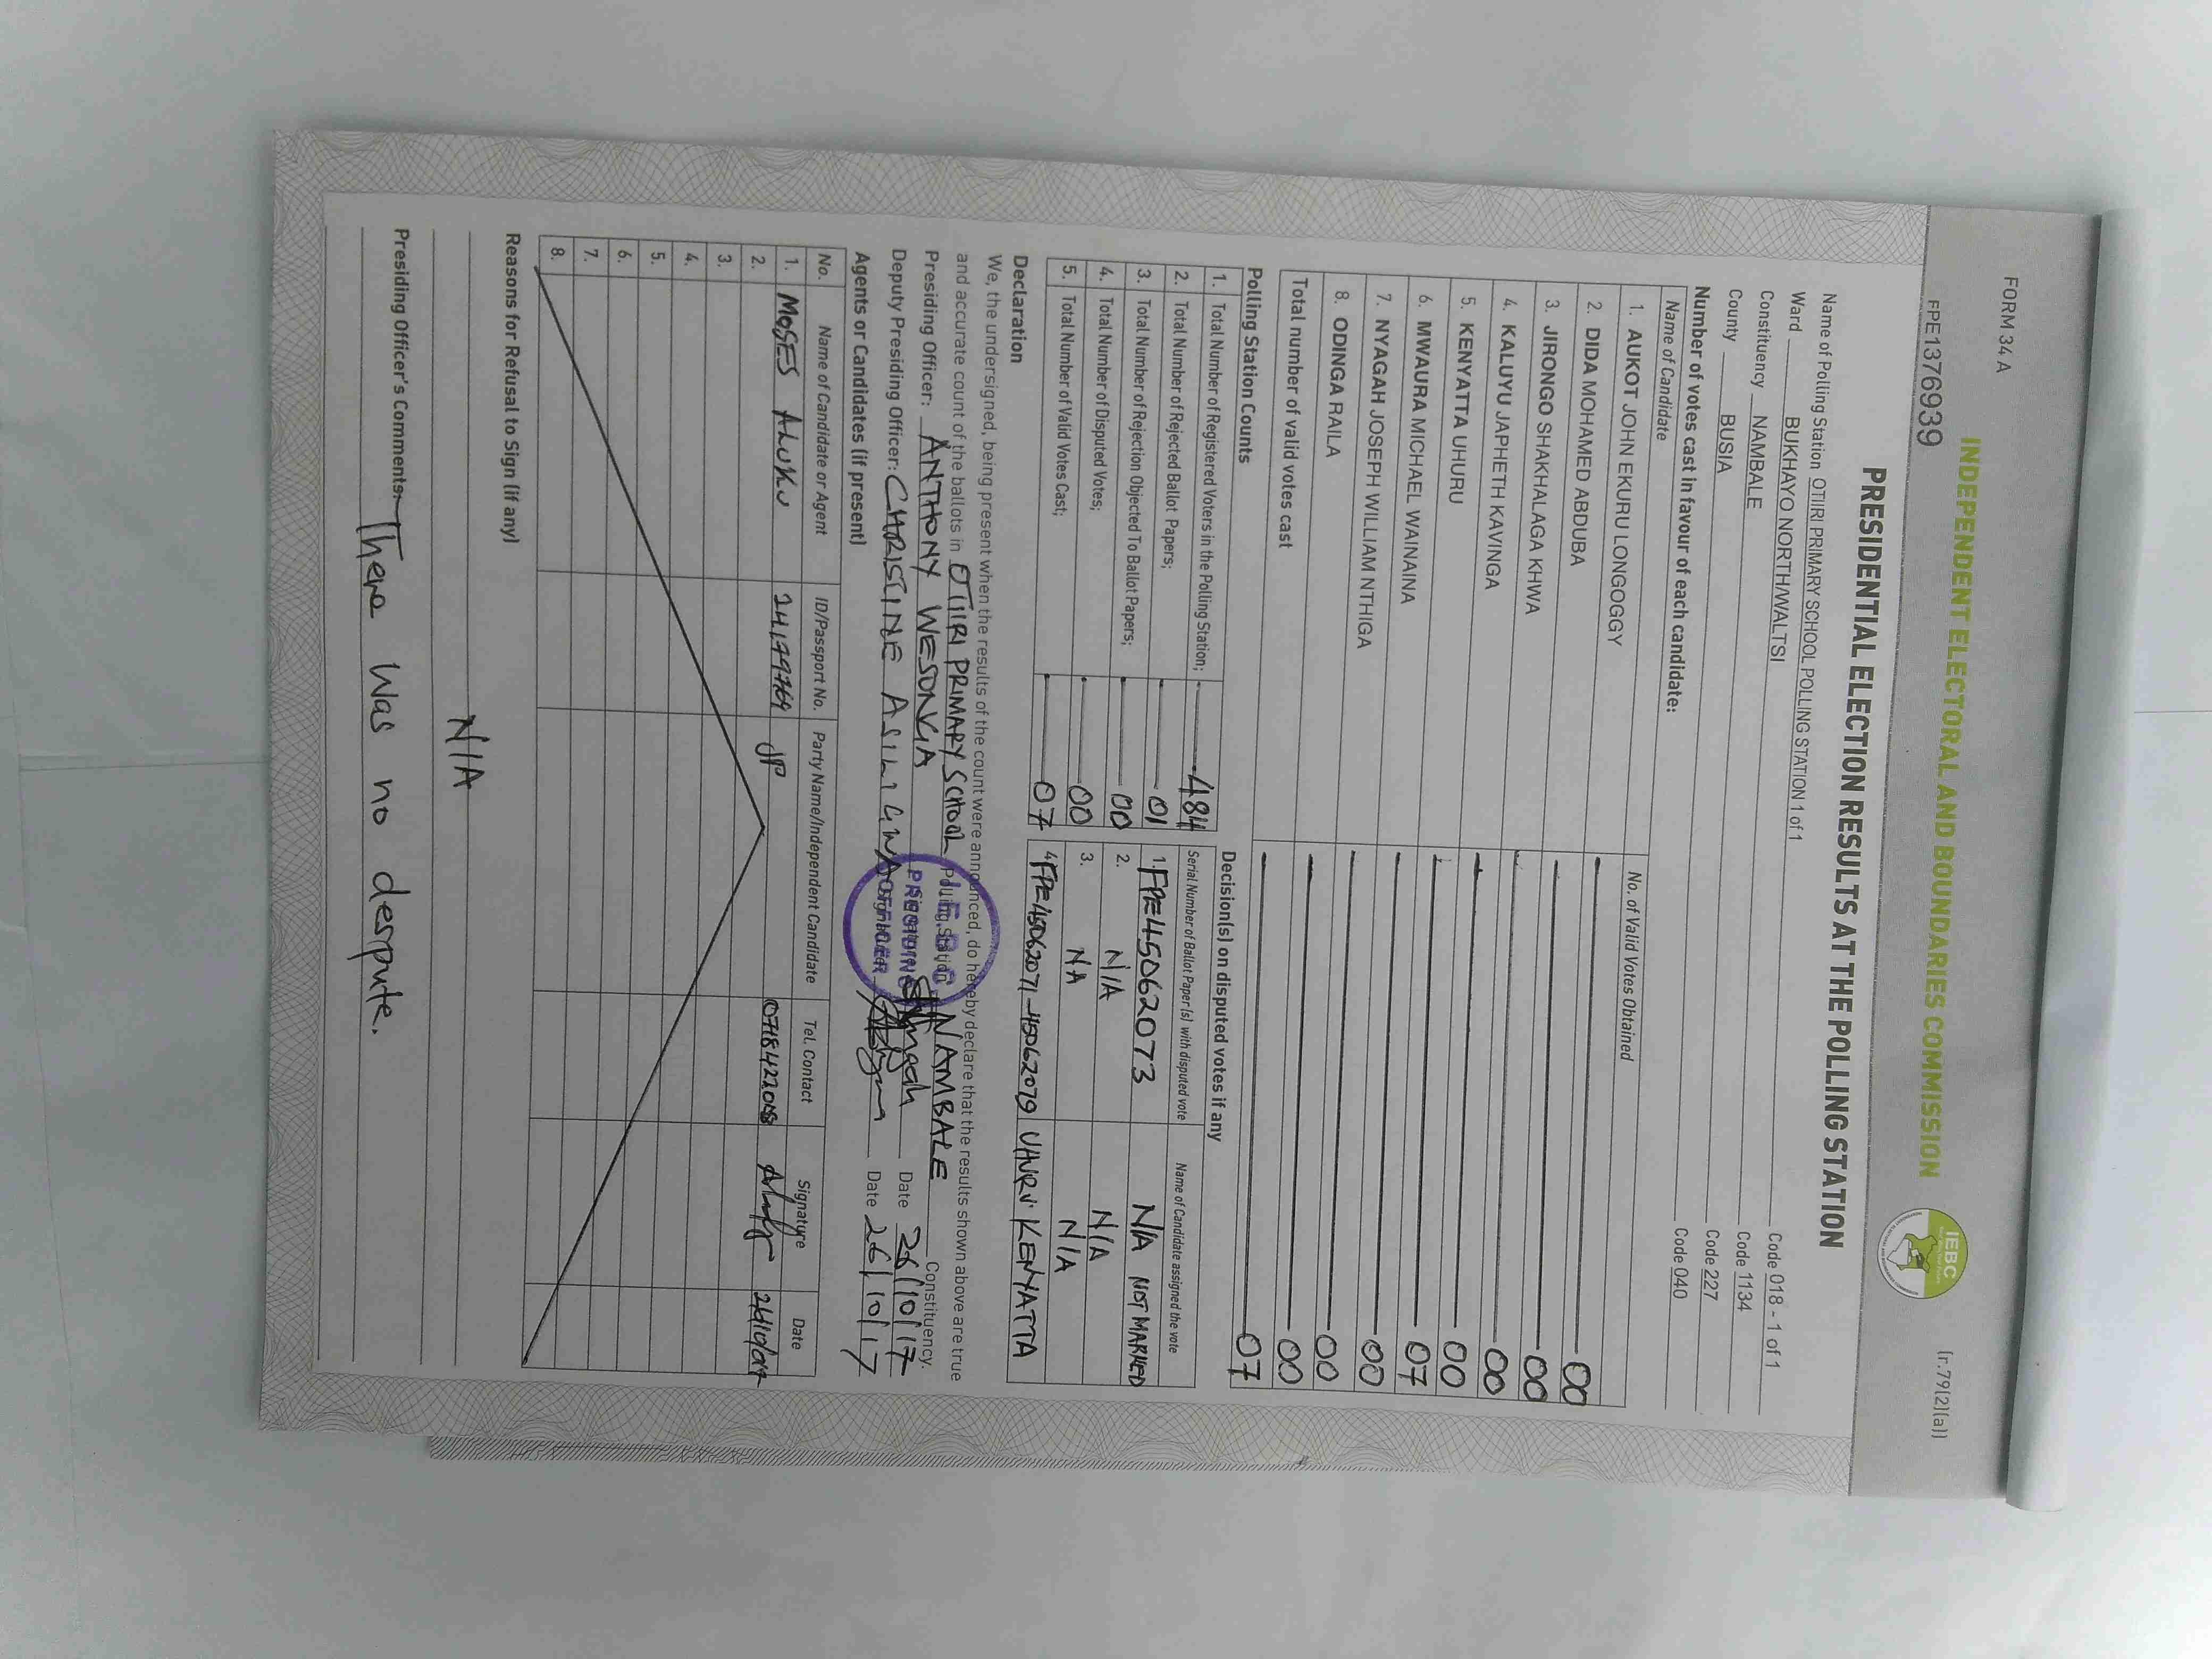 FORM 34 A
(r.79(2)(a))
INDEPENDENT ELECTORAL AND BOUNDARIES COMMISSION
IEBC
FPE1376939
PRESIDENTIAL ELECTION RESULTS AT THE POLLING STATION
Name of Polling Station OTIRI PRIMARY SCHOOL POLLING STATION 1 of 1 Code 018 - 1 of 1
Ward BUKHAYO NORTH/WALTSI Code 1134
Constituency NAMBALE Code 227
County BUSIA Code 040
Number of votes cast in favour of each candidate:
Name of Candidate No. of Valid Votes Obtained
1. AUKOT JOHN EKURU LONGOGGY 00
2. DIDA MOHAMED ABDUBA 00
3. JIRONGO SHAKHALAGA KHWA 00
4. KALUYU JAPHETH KAVINGA 00
5. KENYATTA UHURU 07
6. MWAURA MICHAEL WAINAINA 00
7. NYAGAH JOSEPH WILLIAM NTHIGA 00
8. ODINGA RAILA 00
Total number of valid votes cast 07
Polling Station Counts
1. Total Number of Registered Voters in the Polling Station; 484
2. Total Number of Rejected Ballot Papers; 01
3. Total Number of Rejection Objected To Ballot Papers; 00
4. Total Number of Disputed Votes; 00
5. Total Number of Valid Votes Cast; 07
Decision(s) on disputed votes if any
Serial Number of Ballot Paper(s) with disputed vote Name of Candidate assigned the vote
1. FPE45062073 N/A NOT MARKED
2. N/A N/A
3. NA N/A
4. FPE45062071-45062079 UHURU KENYATTA
Declaration
We, the undersigned, being present when the results of the count were announced, do hereby declare that the results shown above are true
and accurate count of the ballots in OTIIRI PRIMARY SCHOOL Polling Station NAMBALE Constituency.
Presiding Officer: ANTHONY WESONGA Signature Date 26/10/17
Deputy Presiding Officer: CHRISTINE Signature Date 26/10/17
I.E.B.C
PRESIDING
OFFICER
Agents or Candidates (if present)
No. Name of Candidate or Agent ID/Passport No. Party Name/Independent Candidate Tel. Contact Signature Date
1. MOSES ALUKU JP
2.
3.
4.
5.
6.
7.
8.
Reasons for Refusal to Sign (if any)
N/A
Presiding Officer's Comments There Was no despute.